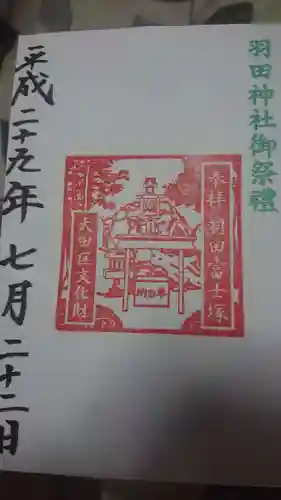 羽田神社御祭禮
奉拝 羽田富士塚
大田区文化財
平成二十九年 七月 二十二日